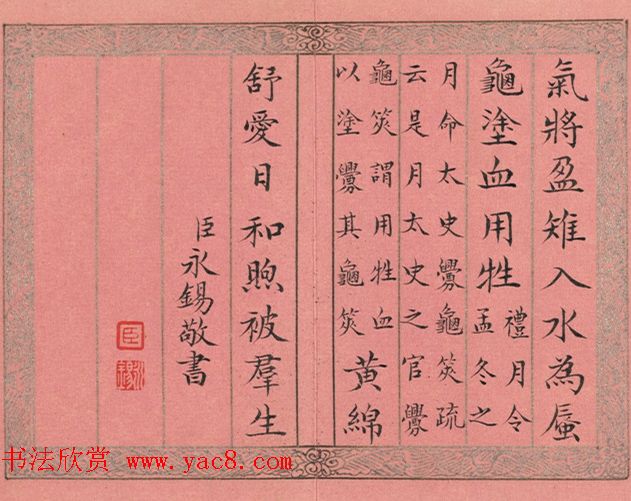 氣將盈雉入水為蜃
龜塗血用牲
禮月令
孟冬之
月命太史釁龜筴疏
云是月太史之官釁
龜筴謂用牲血
以塗釁其龜筴
黃綿
舒愛日和煦被羣生
臣永錫敬書
臣
永錫
书法欣赏 www.yac8.com